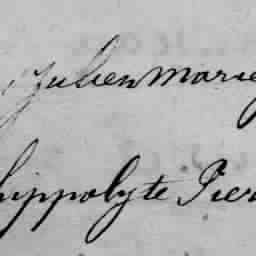 Julien Marie
hippolyte Pier